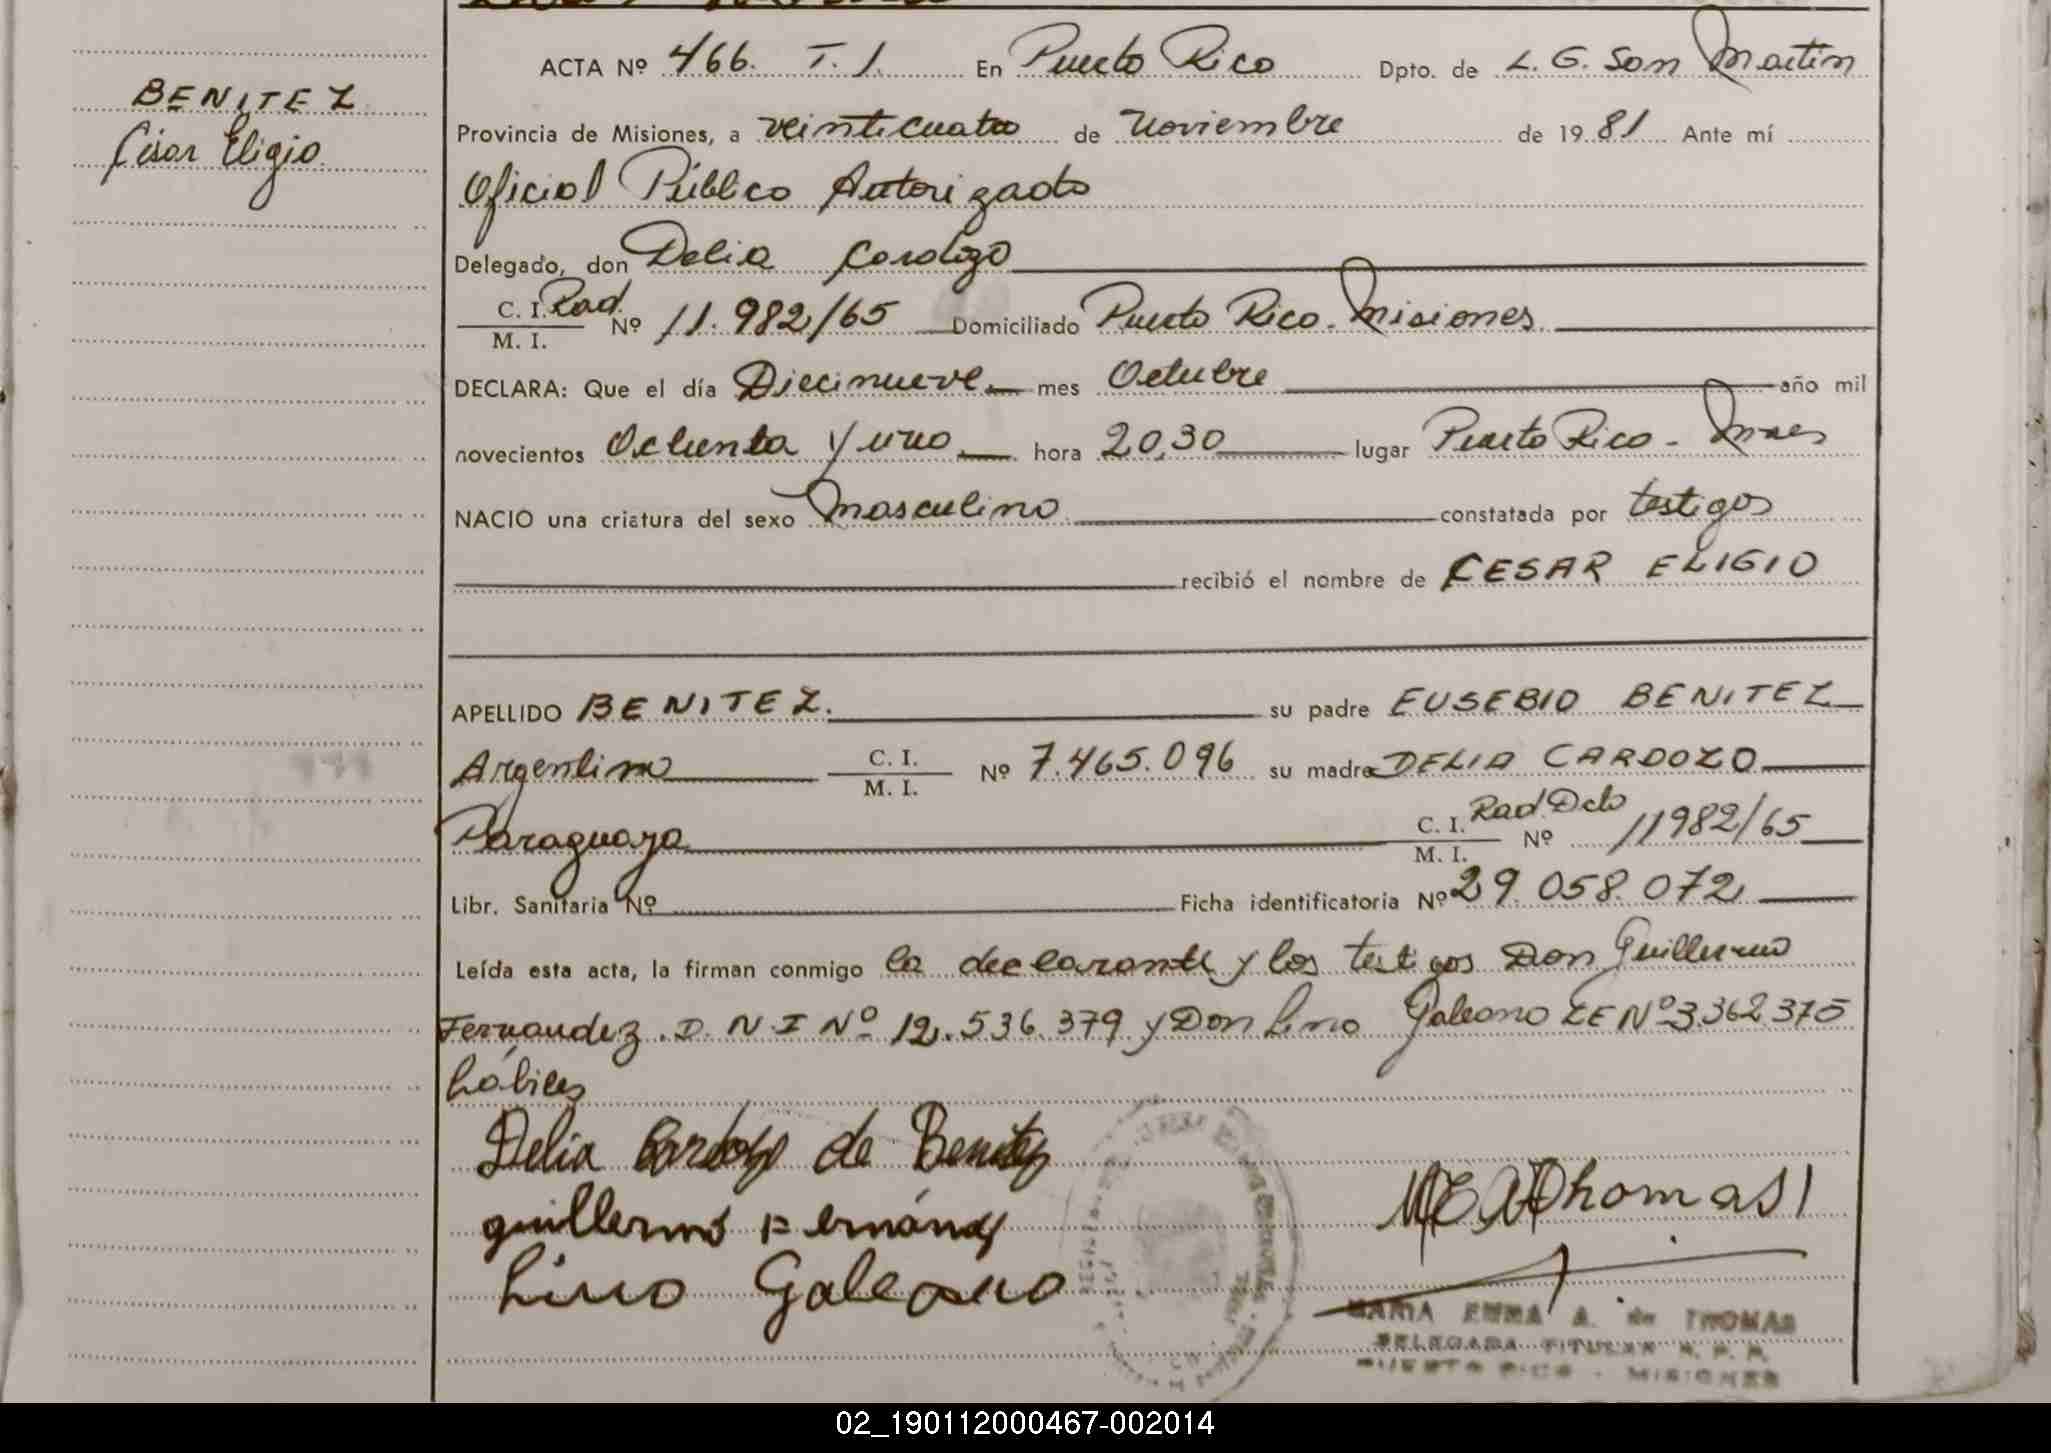 BENITEZ
César Eligio
ACTA Nº 466. T. I. En Puerto Rico Dpto. de L. G. San Martin
Provincia de Misiones, a veinticuatro de Noviembre de 1981 Ante mí
Oficial Público Autorizado
Delegado, don Delia Cardozo
C. I. Rad.
M. I. Nº 11.982/65 Domiciliado Puerto Rico. Misiones
DECLARA: Que el día Diecinueve mes Octubre año mil
novecientos Ochenta y uno hora 20,30 lugar Puerto Rico - Mnes
NACIO una criatura del sexo masculino constatada por testigos
recibió el nombre de CESAR ELIGIO
APELLIDO BENITEZ. su padre EUSEBIO BENITEZ
Argentino C. I. M. I. Nº 7.465.096 su madre DELIA CARDOZO
Paraguaya C. I. M. I. Rad. Dcto Nº 11982/65
Libr. Sanitaria Nº Ficha identificatoria Nº 29.058.072
Leída esta acta, la firman conmigo la declarante y los testigos Don Guillermo
Fernandez. D.N.I Nº 12.536.379 y Don Lino Galeano LE Nº 3.362.375
hábiles
Delia Cardozo de Benitez
guillermo Fernández
Lino Galeano
MARIA EMMA A. de THOMAS
DELEGADA TITULAR R. P. P.
PUERTO RICO - MISIONES
02_190112000467-002014